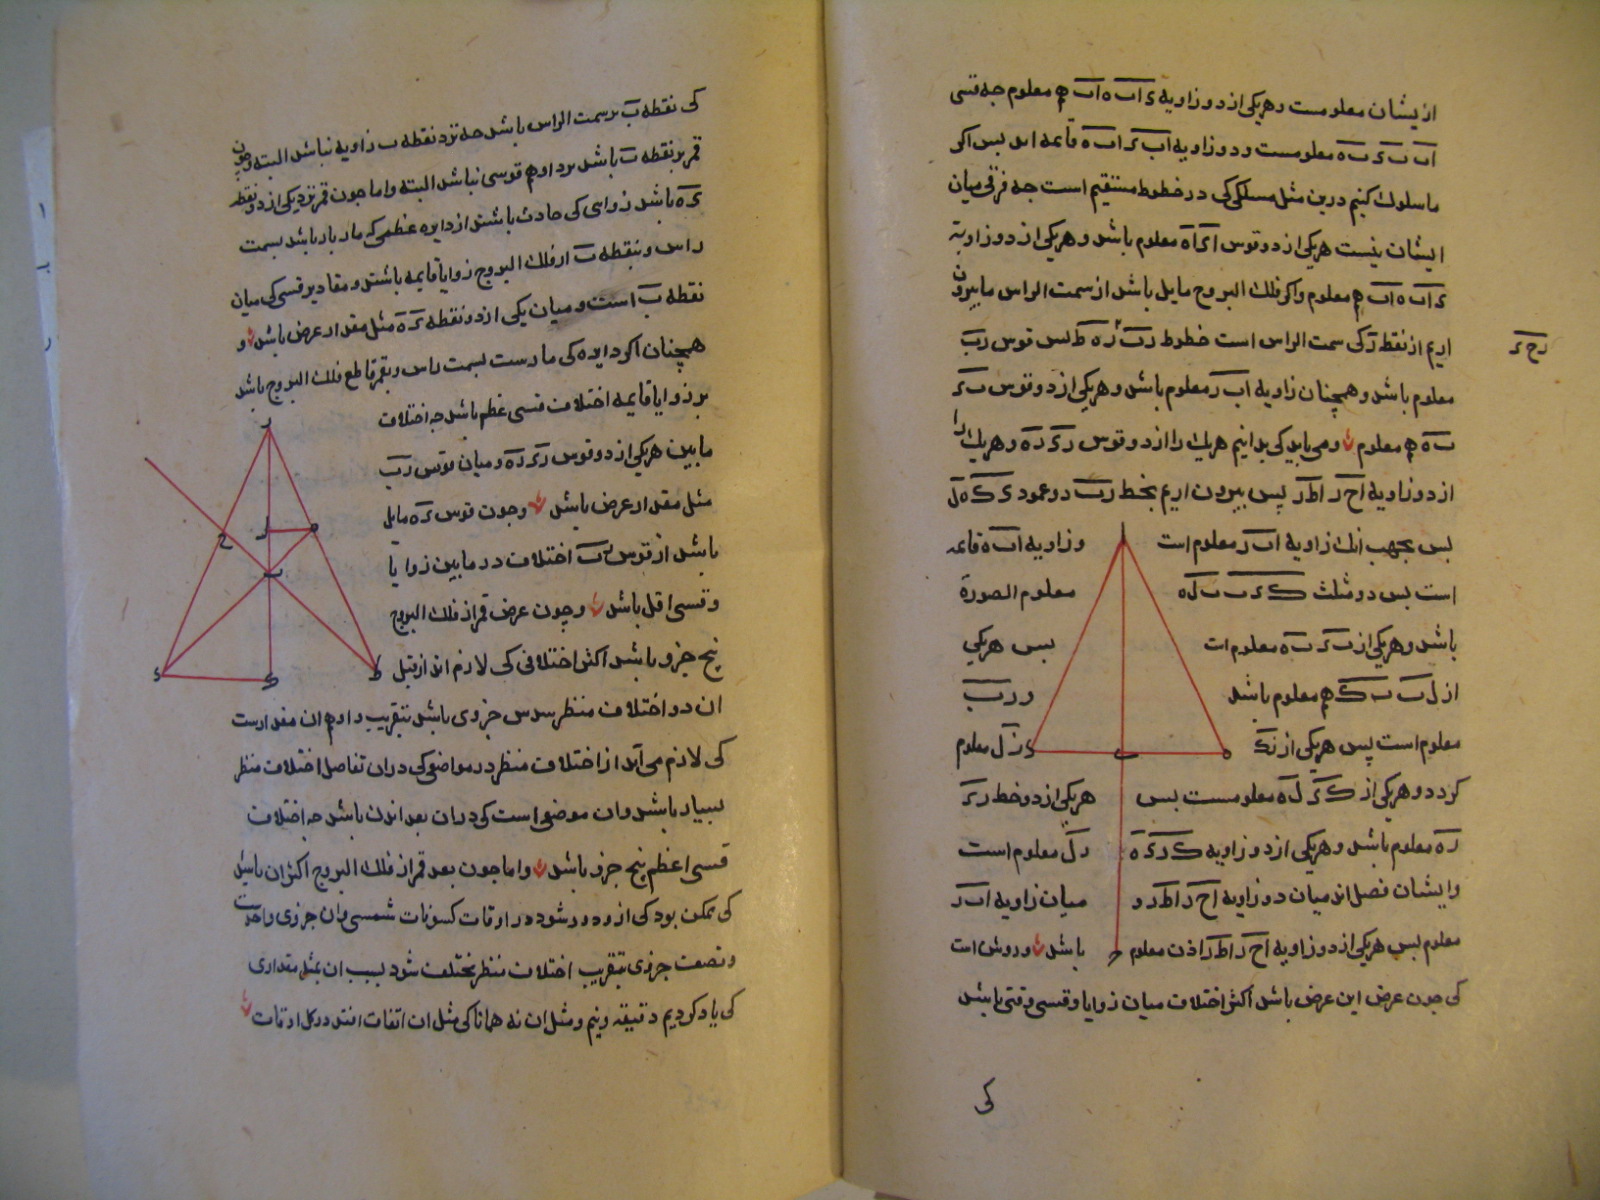 ازیشان معلومست وهریکی از دو زاویه ء اب ه اب هم معلوم جه قسی
اب ب ء ب ه معلومست ودو زاویه اب ء اب ه قایمه اند بس اکر
ما سلوک کنیم درین مثل مسلکی کی در خطوط مستقیم است جه فرقی میان
ایشان نیست هریکی از دو قوس اء اه معلوم باشد وهریکی از دو زاویه
ء اب ه اب هم معلوم واکر فلک البروج مایل باشد از سمت الراس ما بیرون
اریم از نقطه ر کی سمت الراس است خطوط رب ره ط بس قوس رب
رح ء
معلوم باشد وهمچنان زاویه اب ر معلوم باشد وهریکی از دو قوس ب ء
ب ه هم معلوم ومی باید کی بدانیم هریک را از دو قوس رء ره وهریک را
از دو زاویه اح ر اط ر پس بیرون اریم بخط رب دو عمود ء ک ه ل
بس بجهب انک زاویه اب ر معلوم است وزاویه اب ه قایمه
است بس دو مثلث ک ء ب ب ل ه معلوم الصورة
باشد وهریکی از ب ء ب ه معلوم است بس هریکی
از ل ب ب ک هم معلوم باشد ورب
معلوم است پس هریکی از رک رل معلوم
کردد وهریکی از ک ء ل ه معلومست بس هریکی از دو خط رء
ره معلوم باشد وهریکی از دو زاویه ک رء ه رل معلوم است
وایشان فصل اند میان دو زاویه اح ر اط ر و میان زاویه اب ر
معلوم بس هریکی از دو زاویه اح ر اط ر اذن معلوم باشد وروشن است
کی جون عرض این عرض باشد اکثر اختلاف میان زوایا وقسی وقتی باشد
کی
کی نقطه ب برسمت الراس باشد جه نزد نقطه ب زاویه نباشد البته وجون
قمر بر نقطه ب باشد برد اوهم قوسی نباشد البته واما جون قمر نزد یکی از دو نقطه
ء ه باشد زوایی کی حادث باشند از دایره عظمی که مار باد باشد بسمت
راس وبنقطه ب از فلک البروج زوایا قایمه باشند ومقادیر قسی کی میان
نقطه ب است ومیان یکی از دو نقطه ء ه مثل مقدار عرض باشد و
همچنان اکر دایره کی مارست بسمت راس وبقمر قاطع فلک البروج باشد
بر زوایا قایمه اختلاف قسی عظم باشد جه اختلاف
مابین هریکی از دو قوس رء ره ومیان قوس رب
مثل مقدار عرض باشد وجون قوس ء ه مایل
باشد از قوس رب اختلاف در مابین زوایا
وقسی اقل باشد وجون عرض قمر از فلک البروج
پنج جزو باشد اکثر اختلافی کی لازم اند از قبل
ان دو اختلاف منظر سدس جزوی باشد بتقریب واوهم ان مقدارست
کی لازم می آید از اختلاف منظر در مواضعی کی دران تفاضل اختلاف منظر
بسیار باشد وان موضعی است کی دران بعد اندک باشد جه اختلاف
قسی اعظم پنج جزو باشد واما جون بعد قمر از فلک البروج اکثران باشد
کی ممکن بود کی از ودور شود در اوقات کسوفات شمسی وان جزوی واحدست
ونصف جزوی بتقریب اختلاف منظر مختلف شود بسبب ان بمثل مقداری
کی یاد کردیم دقیقه ونیم ومثل ان نه همانا کی مثل ان اتفاق افتد در کل اوقات